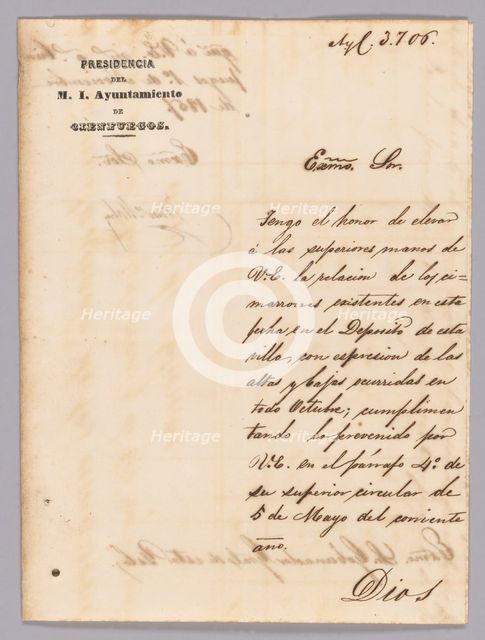 Nyl. 3.706.
PRESIDENCIA
DEL
M. I. Ayuntamiento
DE
CIENFUEGOS.
Exmo. Sor.
Tengo el honor de elevar
á las superiores manos de
V.E. la relacion de los ci=
marrones existentes en esta
fecha en el Deposito de esta
villa, con espresion de las
altas y bajas ocurridas en
todo Octubre; cumplimen
tando lo prevenido por
V.E. en el párrafo 4º. de
su superior circular de
5 de Mayo del corriente
año.
Dios
Heritage
Heritage
Heritage
Heritage
Heritage
Heritage